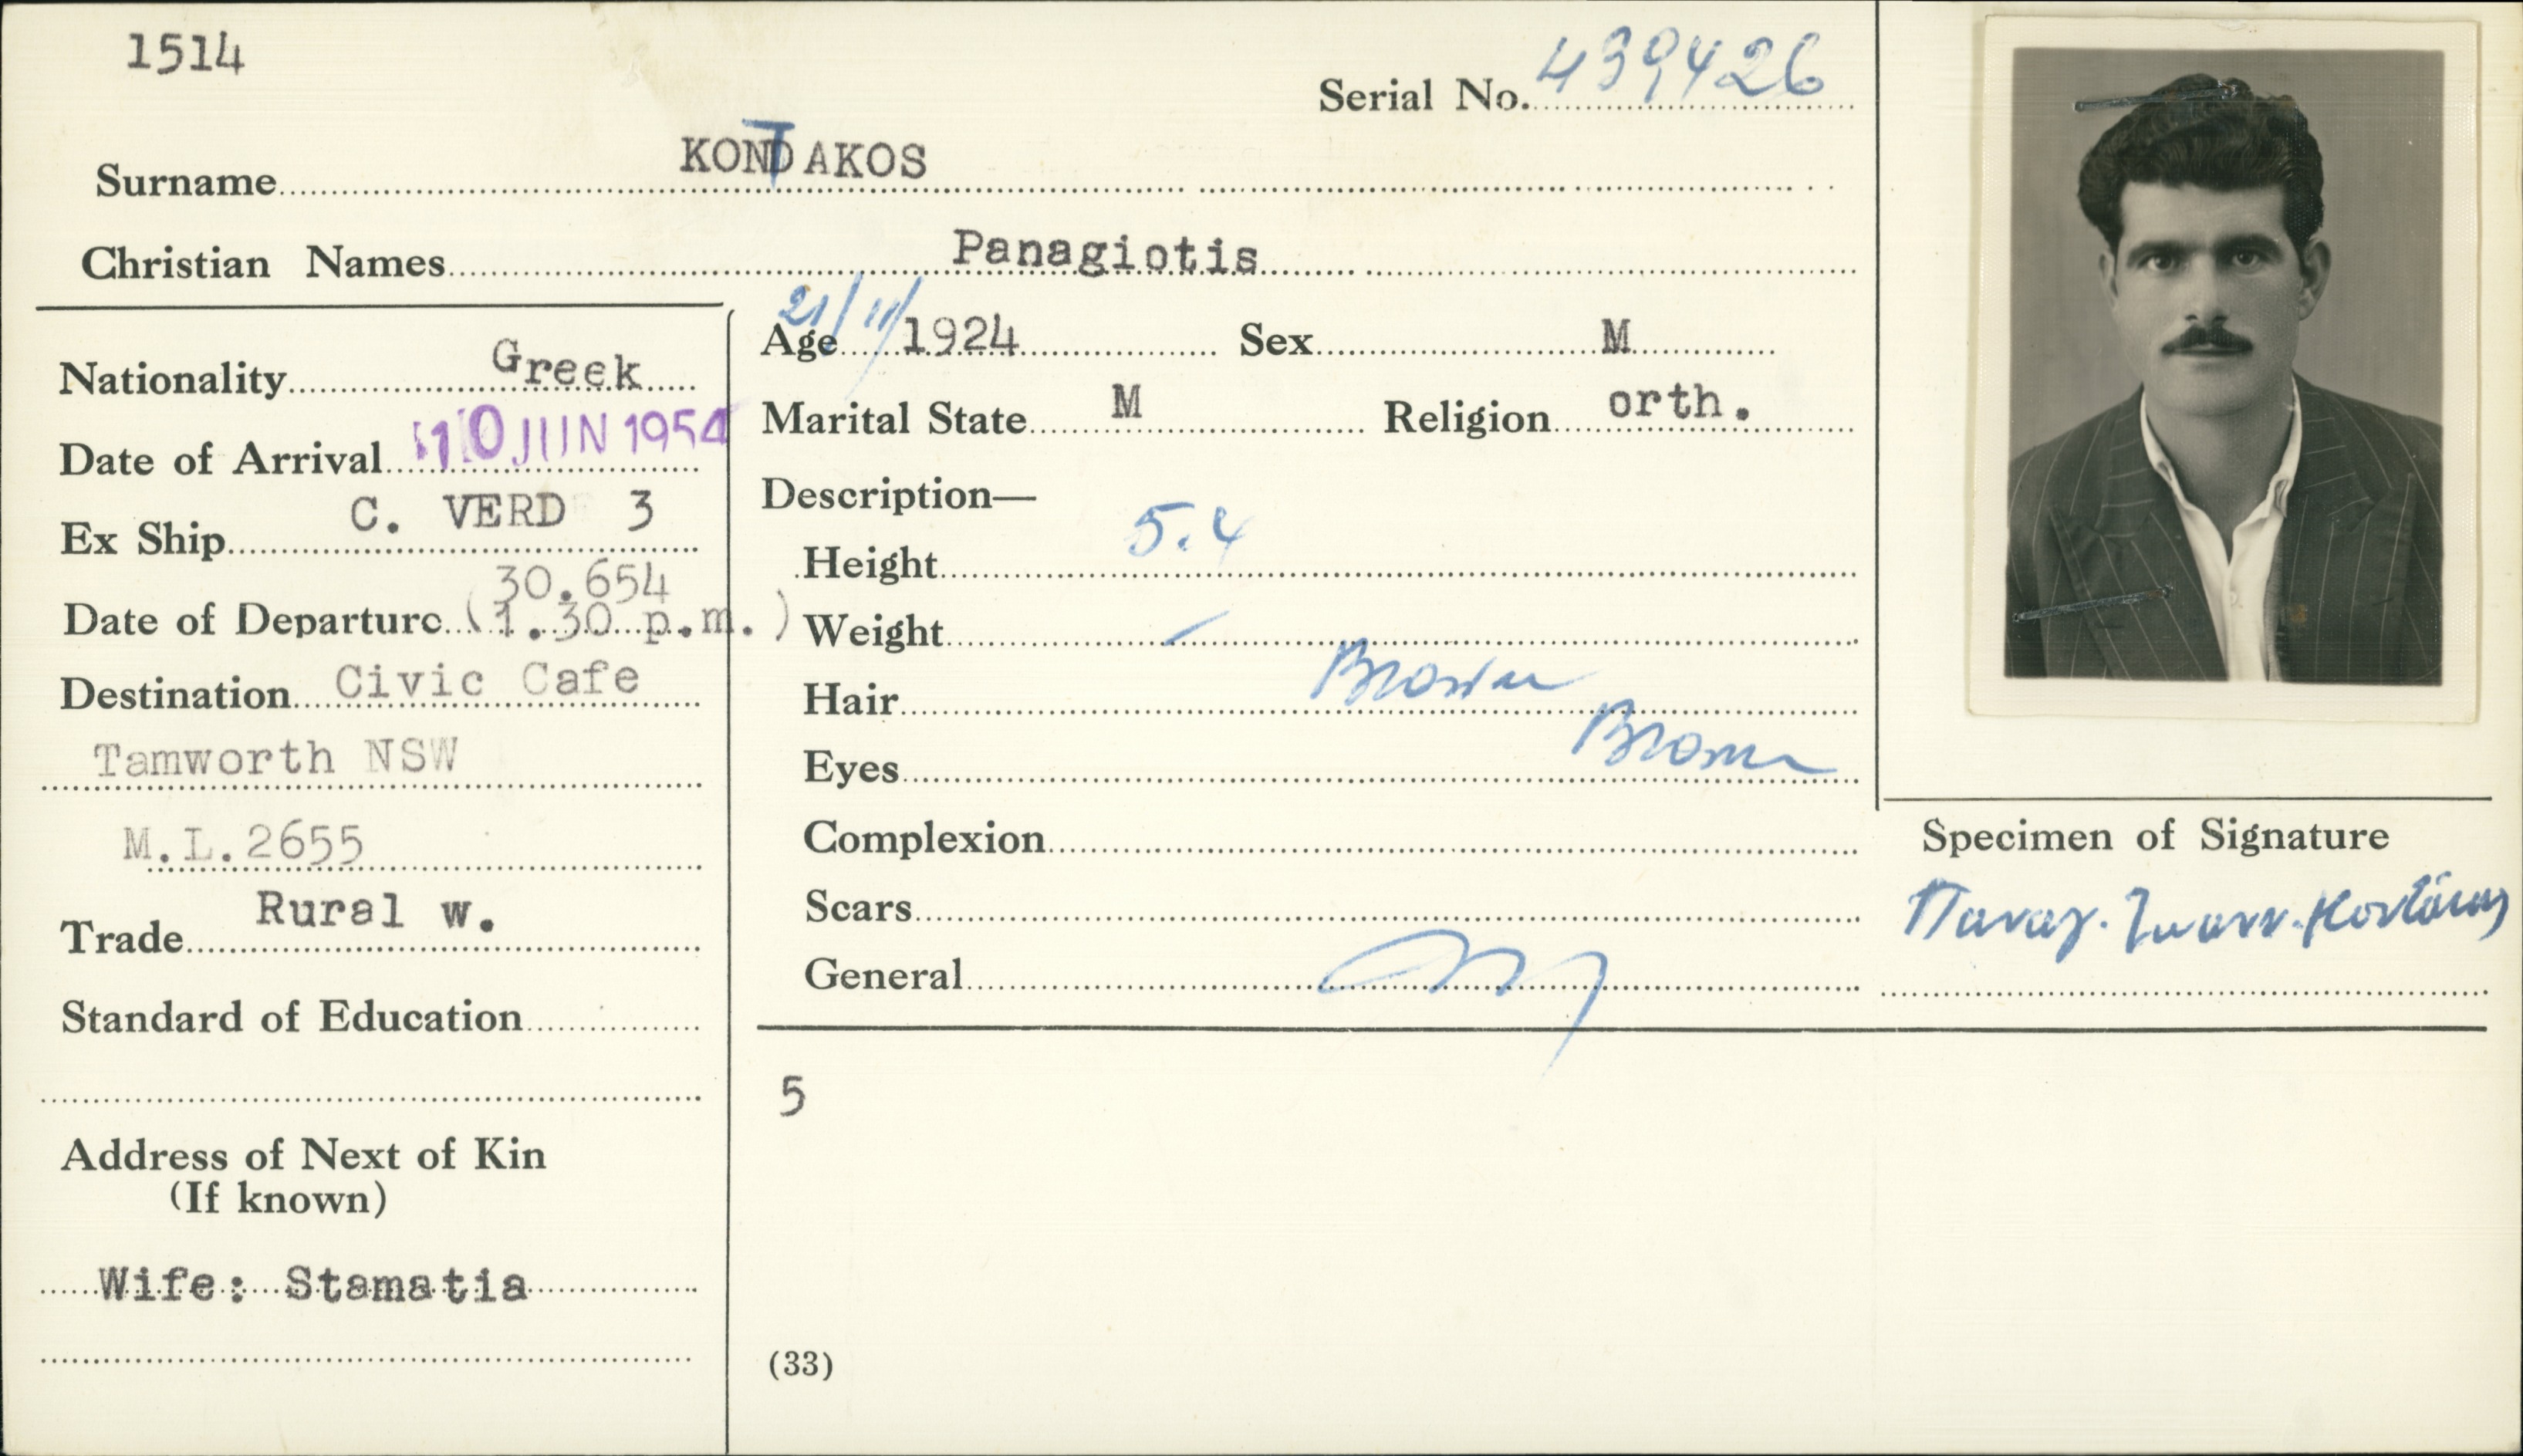 1514
Serial No. 439426
Surname KONTAKOS
Christian Names Panagiotis
Nationality Greek
Date of Arrival 10 JUN 1954
Ex Ship C. VERD 3
30.654
Date of Departure (1.30 p.m.)
Destination Civic Cafe
Tamworth NSW
M.L.2655
Trade Rural w.
Standard of Education
Address of Next of Kin
(If known)
Wife: Stamatia
Age 21/11/1924 Sex M
Marital State M Religion orth.
Description—
Height 5.4
Weight –
Hair Brown
Eyes Brown
Complexion
Scars
General
5
(33)
Specimen of Signature
Παναγ. Ιωανν. Κοντάκος